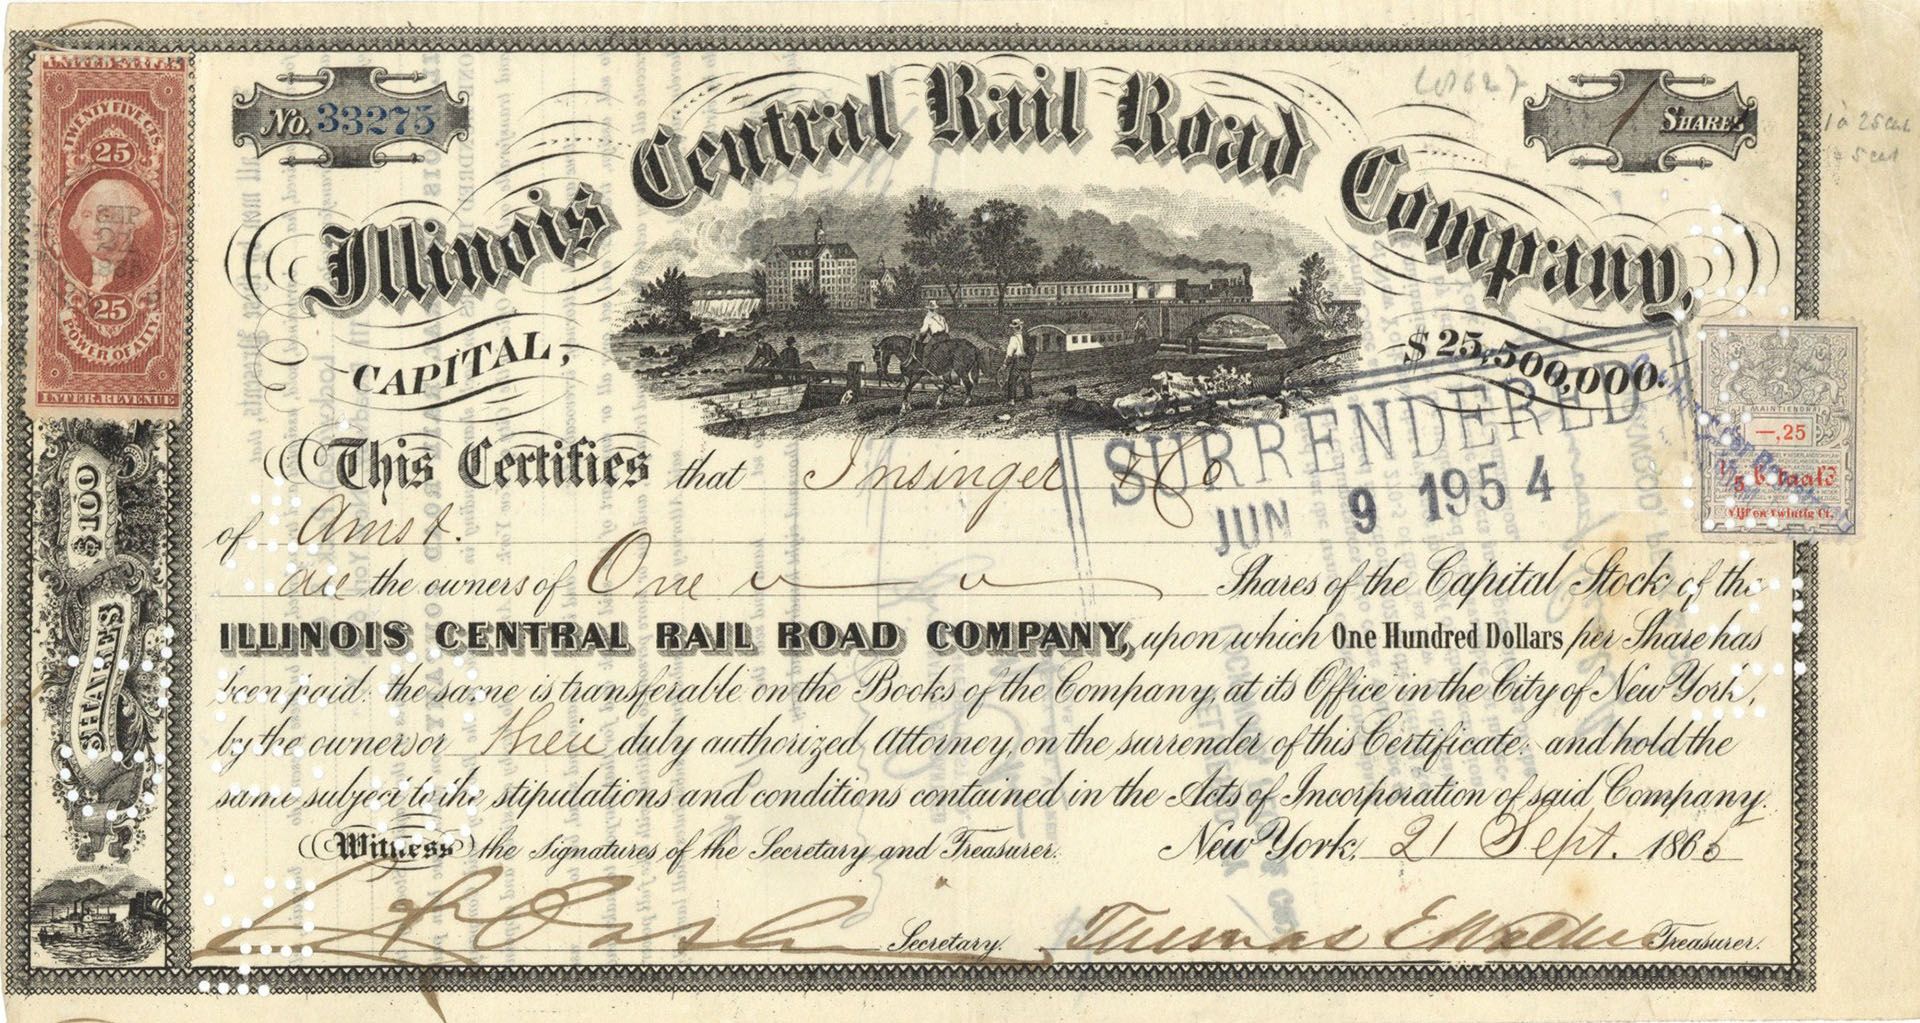 UNITED STATES
TWENTY FIVE CTS.
25
SEP
21
25
POWER OF ATTY.
INTER. REVENUE
No. 33275
1 SHARES
Illinois Central Rail Road Company,
CAPITAL, $25,500,000.
1 a 25 cent
SURRENDERED
JUN 9 1954
MAINTIENDRAI
—,25
Vijf en twintig Ct.
$100
SHARES
This Certifies that Insinger & Co
of Amst.
are the owners of One Shares of the Capital Stock of the
ILLINOIS CENTRAL RAIL ROAD COMPANY, upon which One Hundred Dollars per Share has
been paid: the same is transferable on the Books of the Company, at its Office in the City of New York,
by the owners or their duly authorized Attorney, on the surrender of this Certificate: and hold the
same subject to the stipulations and conditions contained in the Acts of Incorporation of said Company.
Witness the Signatures of the Secretary and Treasurer. New York, 21 Sept. 1865
Secretary. Thomas E Walker Treasurer.